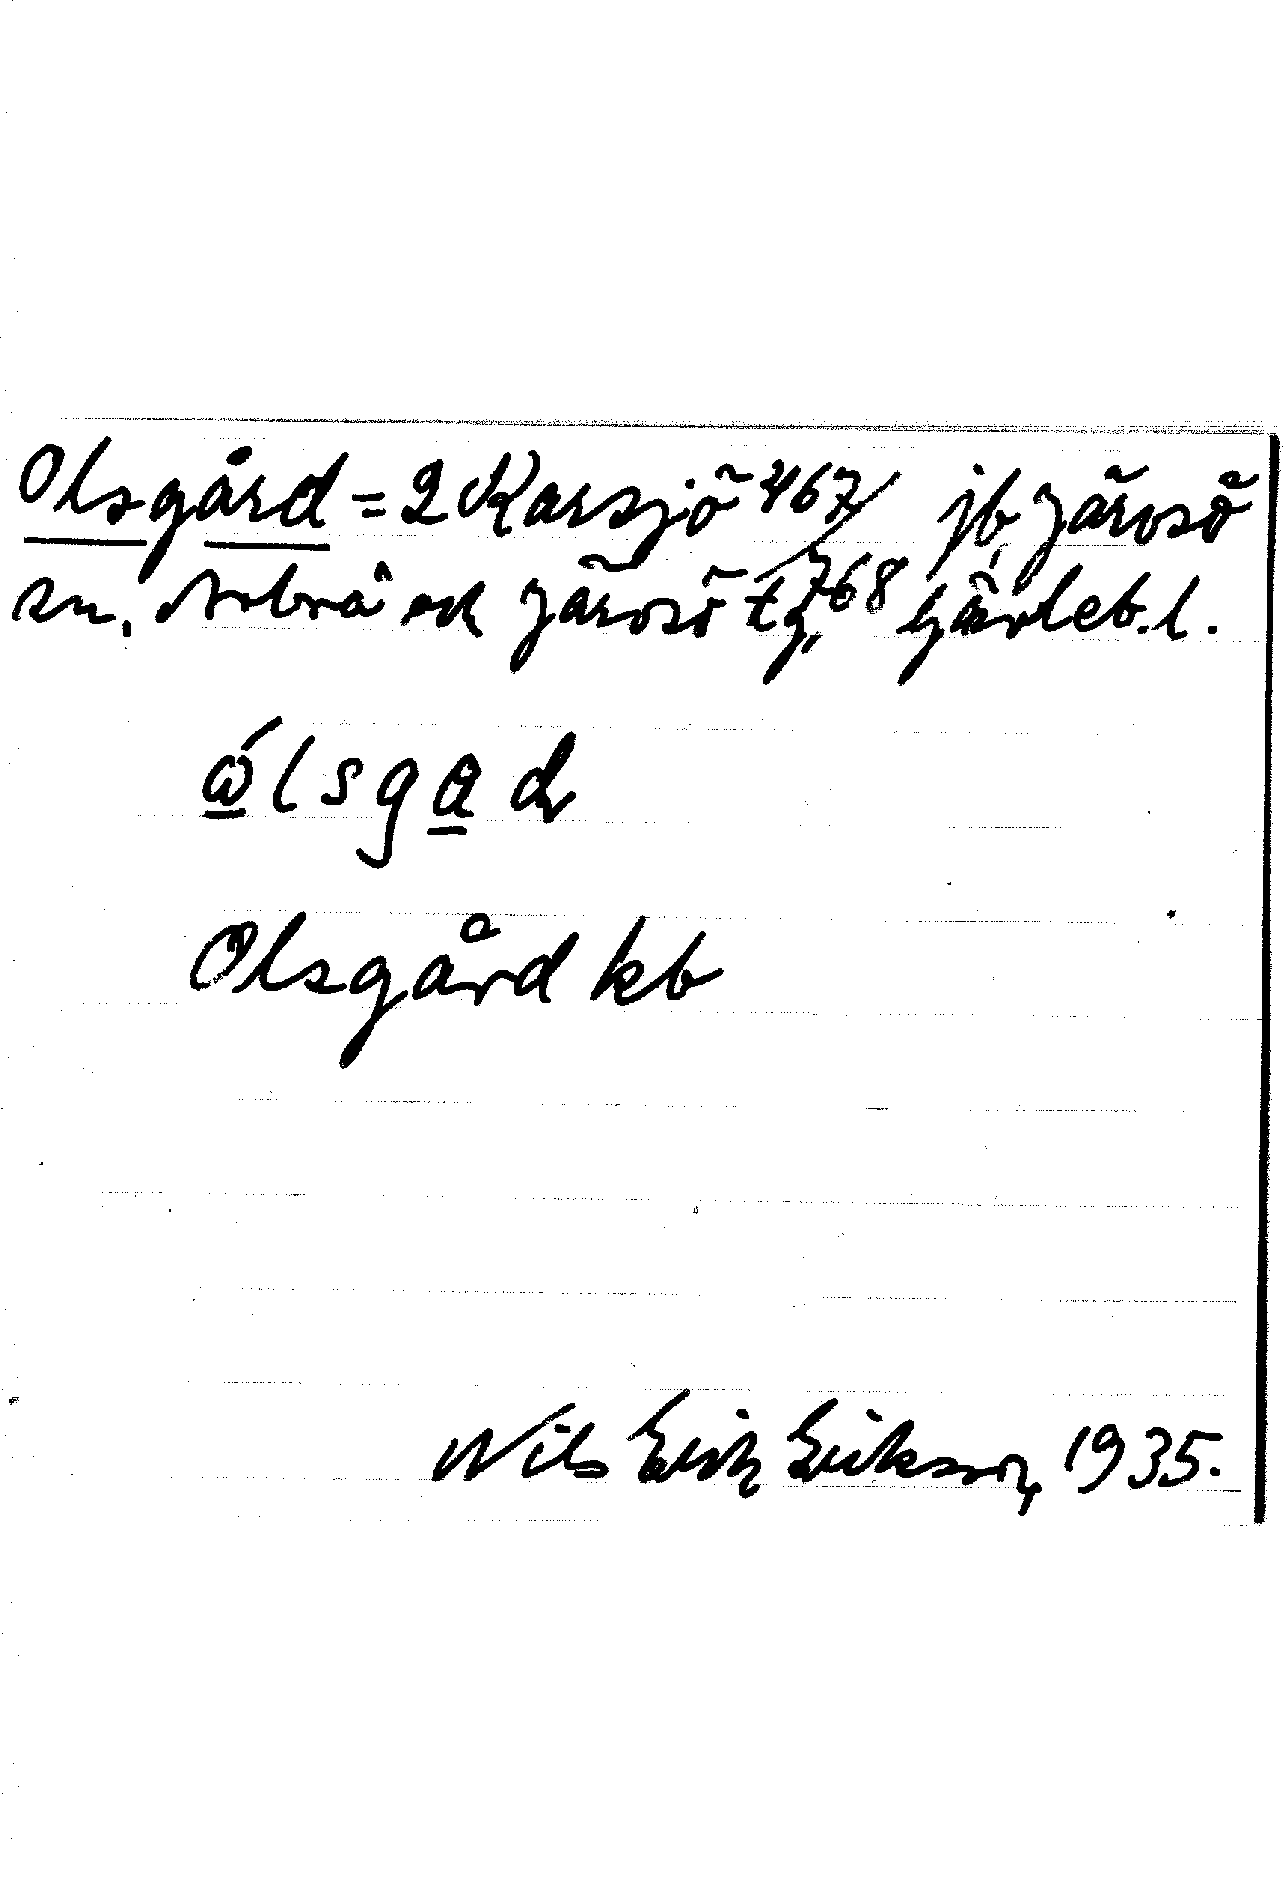 Olsgård = 2 Karsjö 467/768 jb, Järvsö
sn, Arbrå och Järvsö tg, Gävleb. l.
ώlsgad
Olsgård kb
Nils Erik Erikson, 1935.